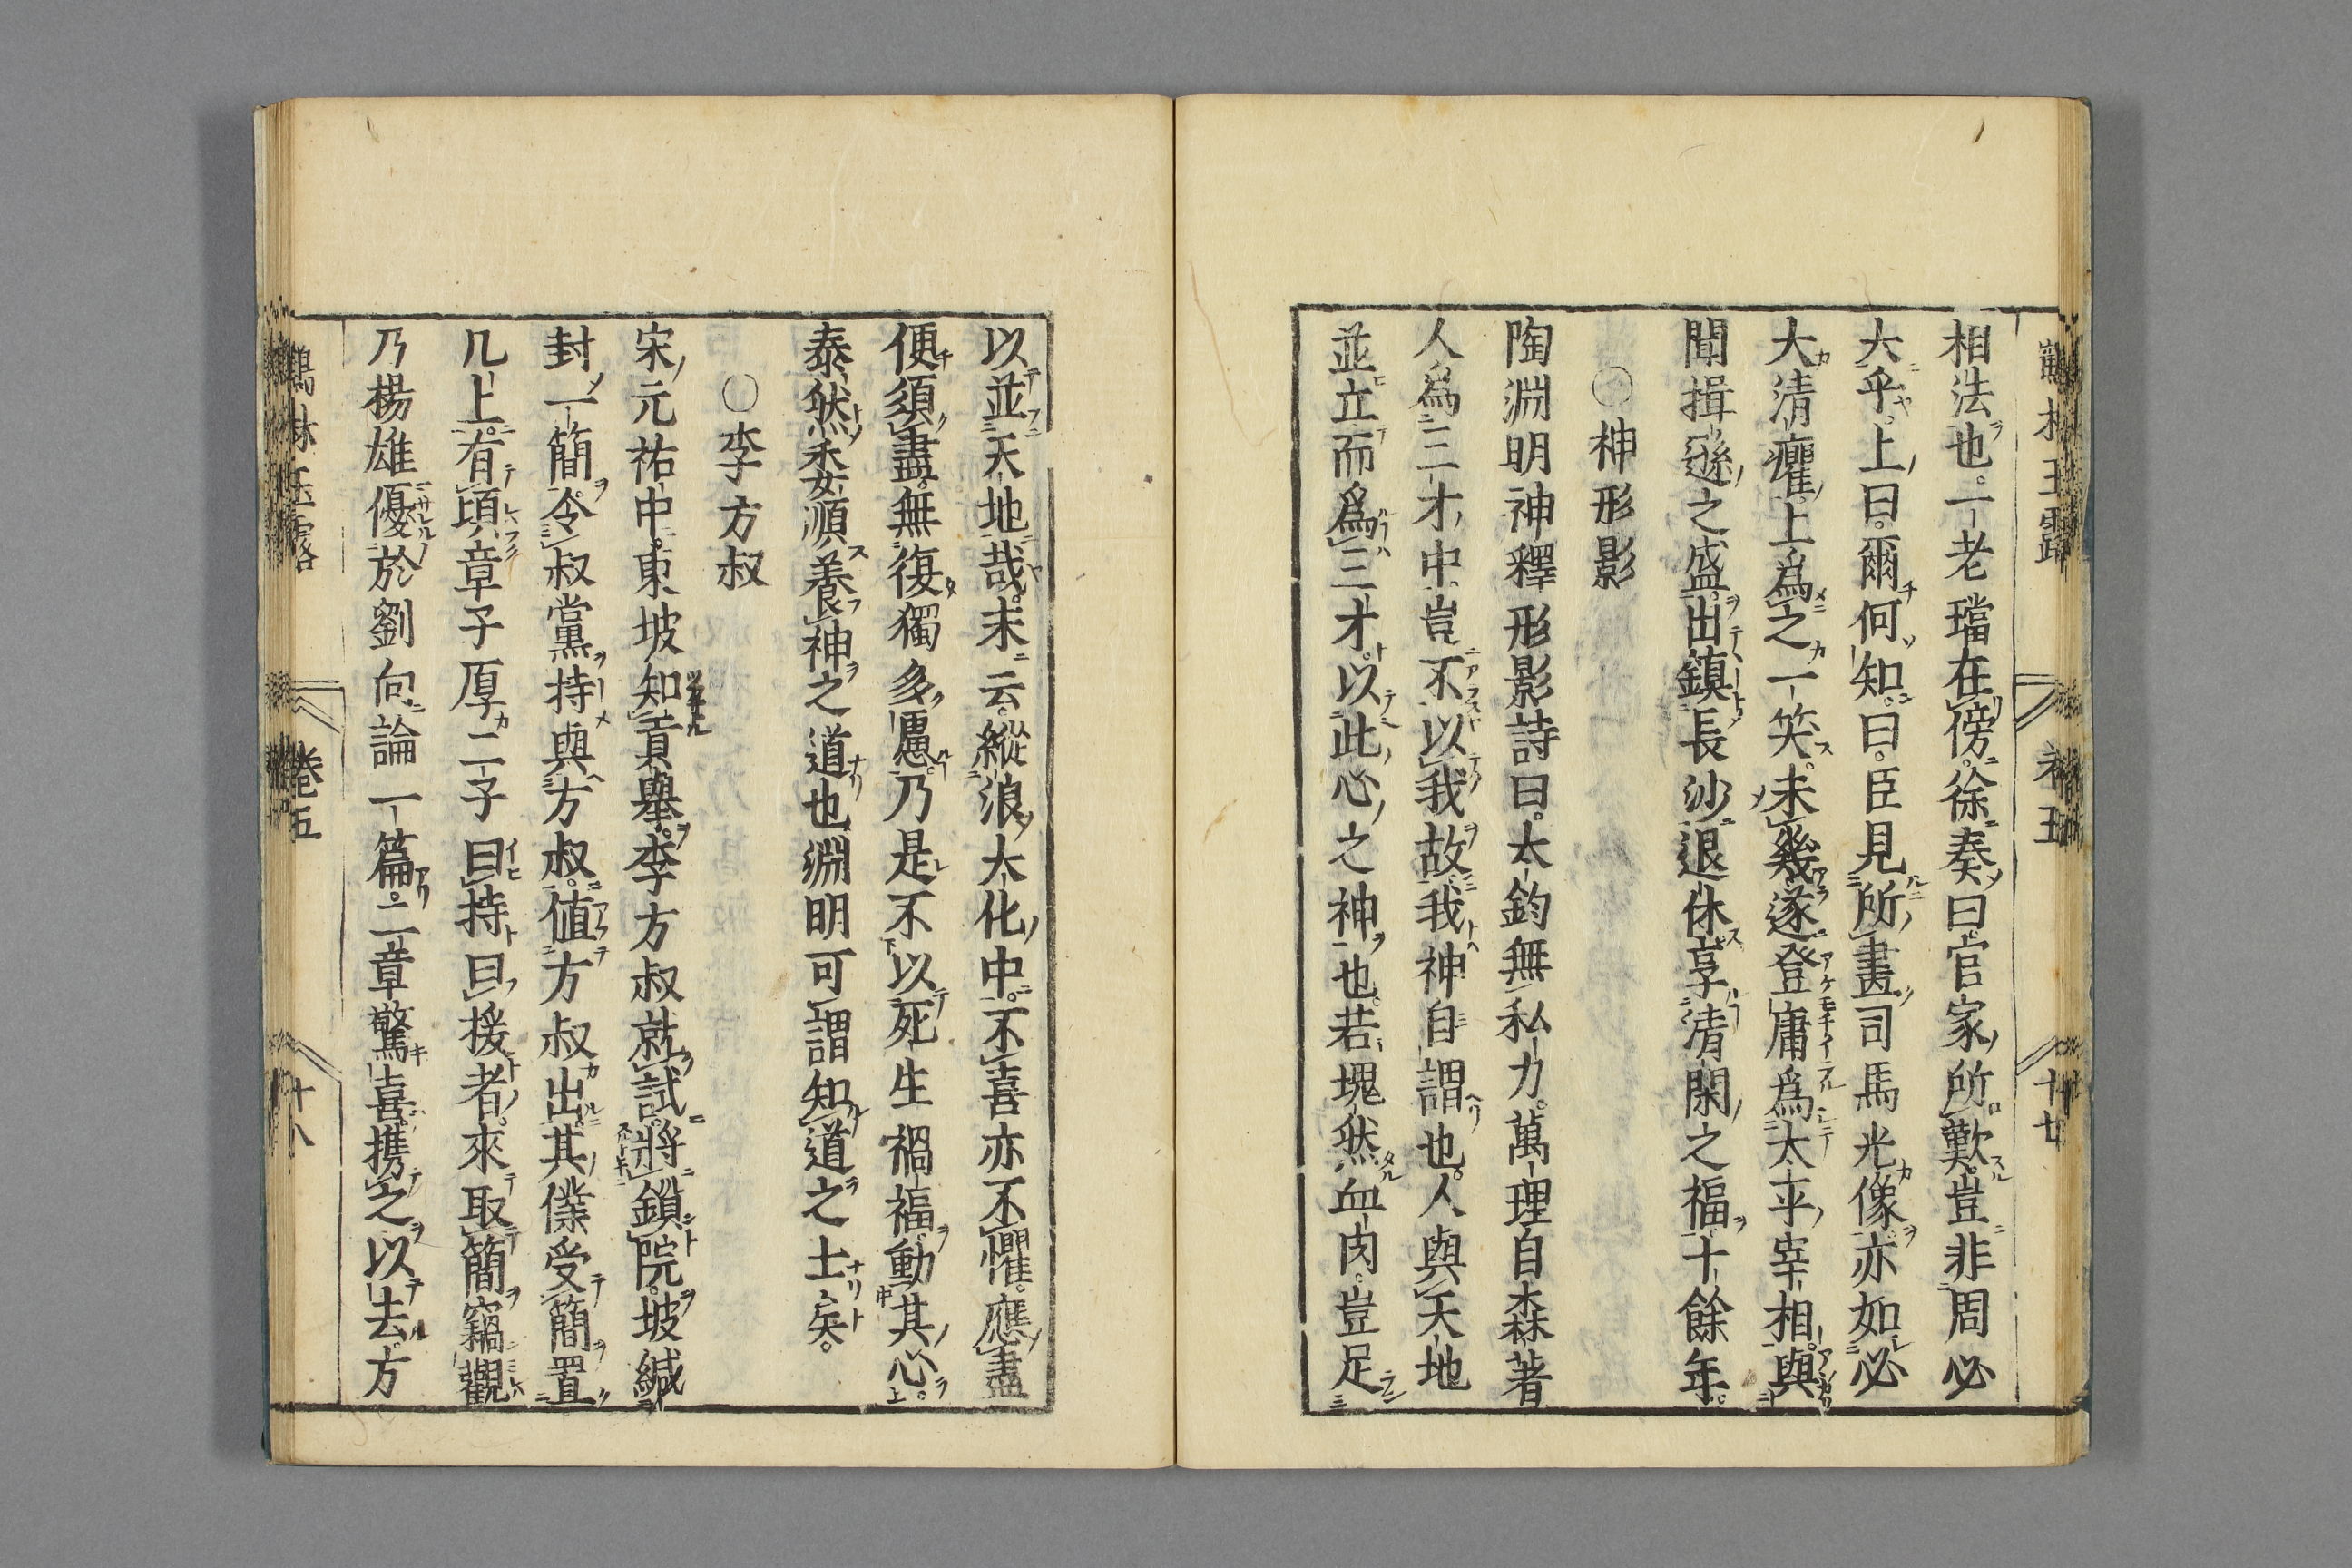 相法也。一老璫在傍。徐奏曰。官家所歎。豈非周必
大乎。上曰。爾何知。曰。臣見所畫司馬光像。亦如必
大清癯。上爲之一笑。未幾遂登庸爲太平宰相。與
聞揖遜之盛。出鎮長沙退休。享清閑之福十餘年。
○神形影
陶淵明神釋形影詩曰。大鈞無私力。萬理自森著
人爲三才中。豈不以我故。我神自謂也。人與天地
並立而爲三才。以此心之神也。若塊然血肉。豈足
鶴林玉露 卷五 十七
以並天地哉。末云。縱浪大化中。不喜亦不懼。應盡
便須盡。無復獨多慮。乃是不以死生禍福動其心。
泰然委順養神之道也。淵明可謂知道之士矣。
○李方叔
宋元祐中。東坡知貢舉。李方叔就試。將鎖院。坡緘
封一簡。令叔黨持與方叔。值方叔出。其僕受簡置
几上。有頃。章子厚二子曰持曰援者。來取簡竊觀
乃楊雄優於劉向論一篇。二章驚喜。携之以去。方
鶴林玉露 卷五 十八